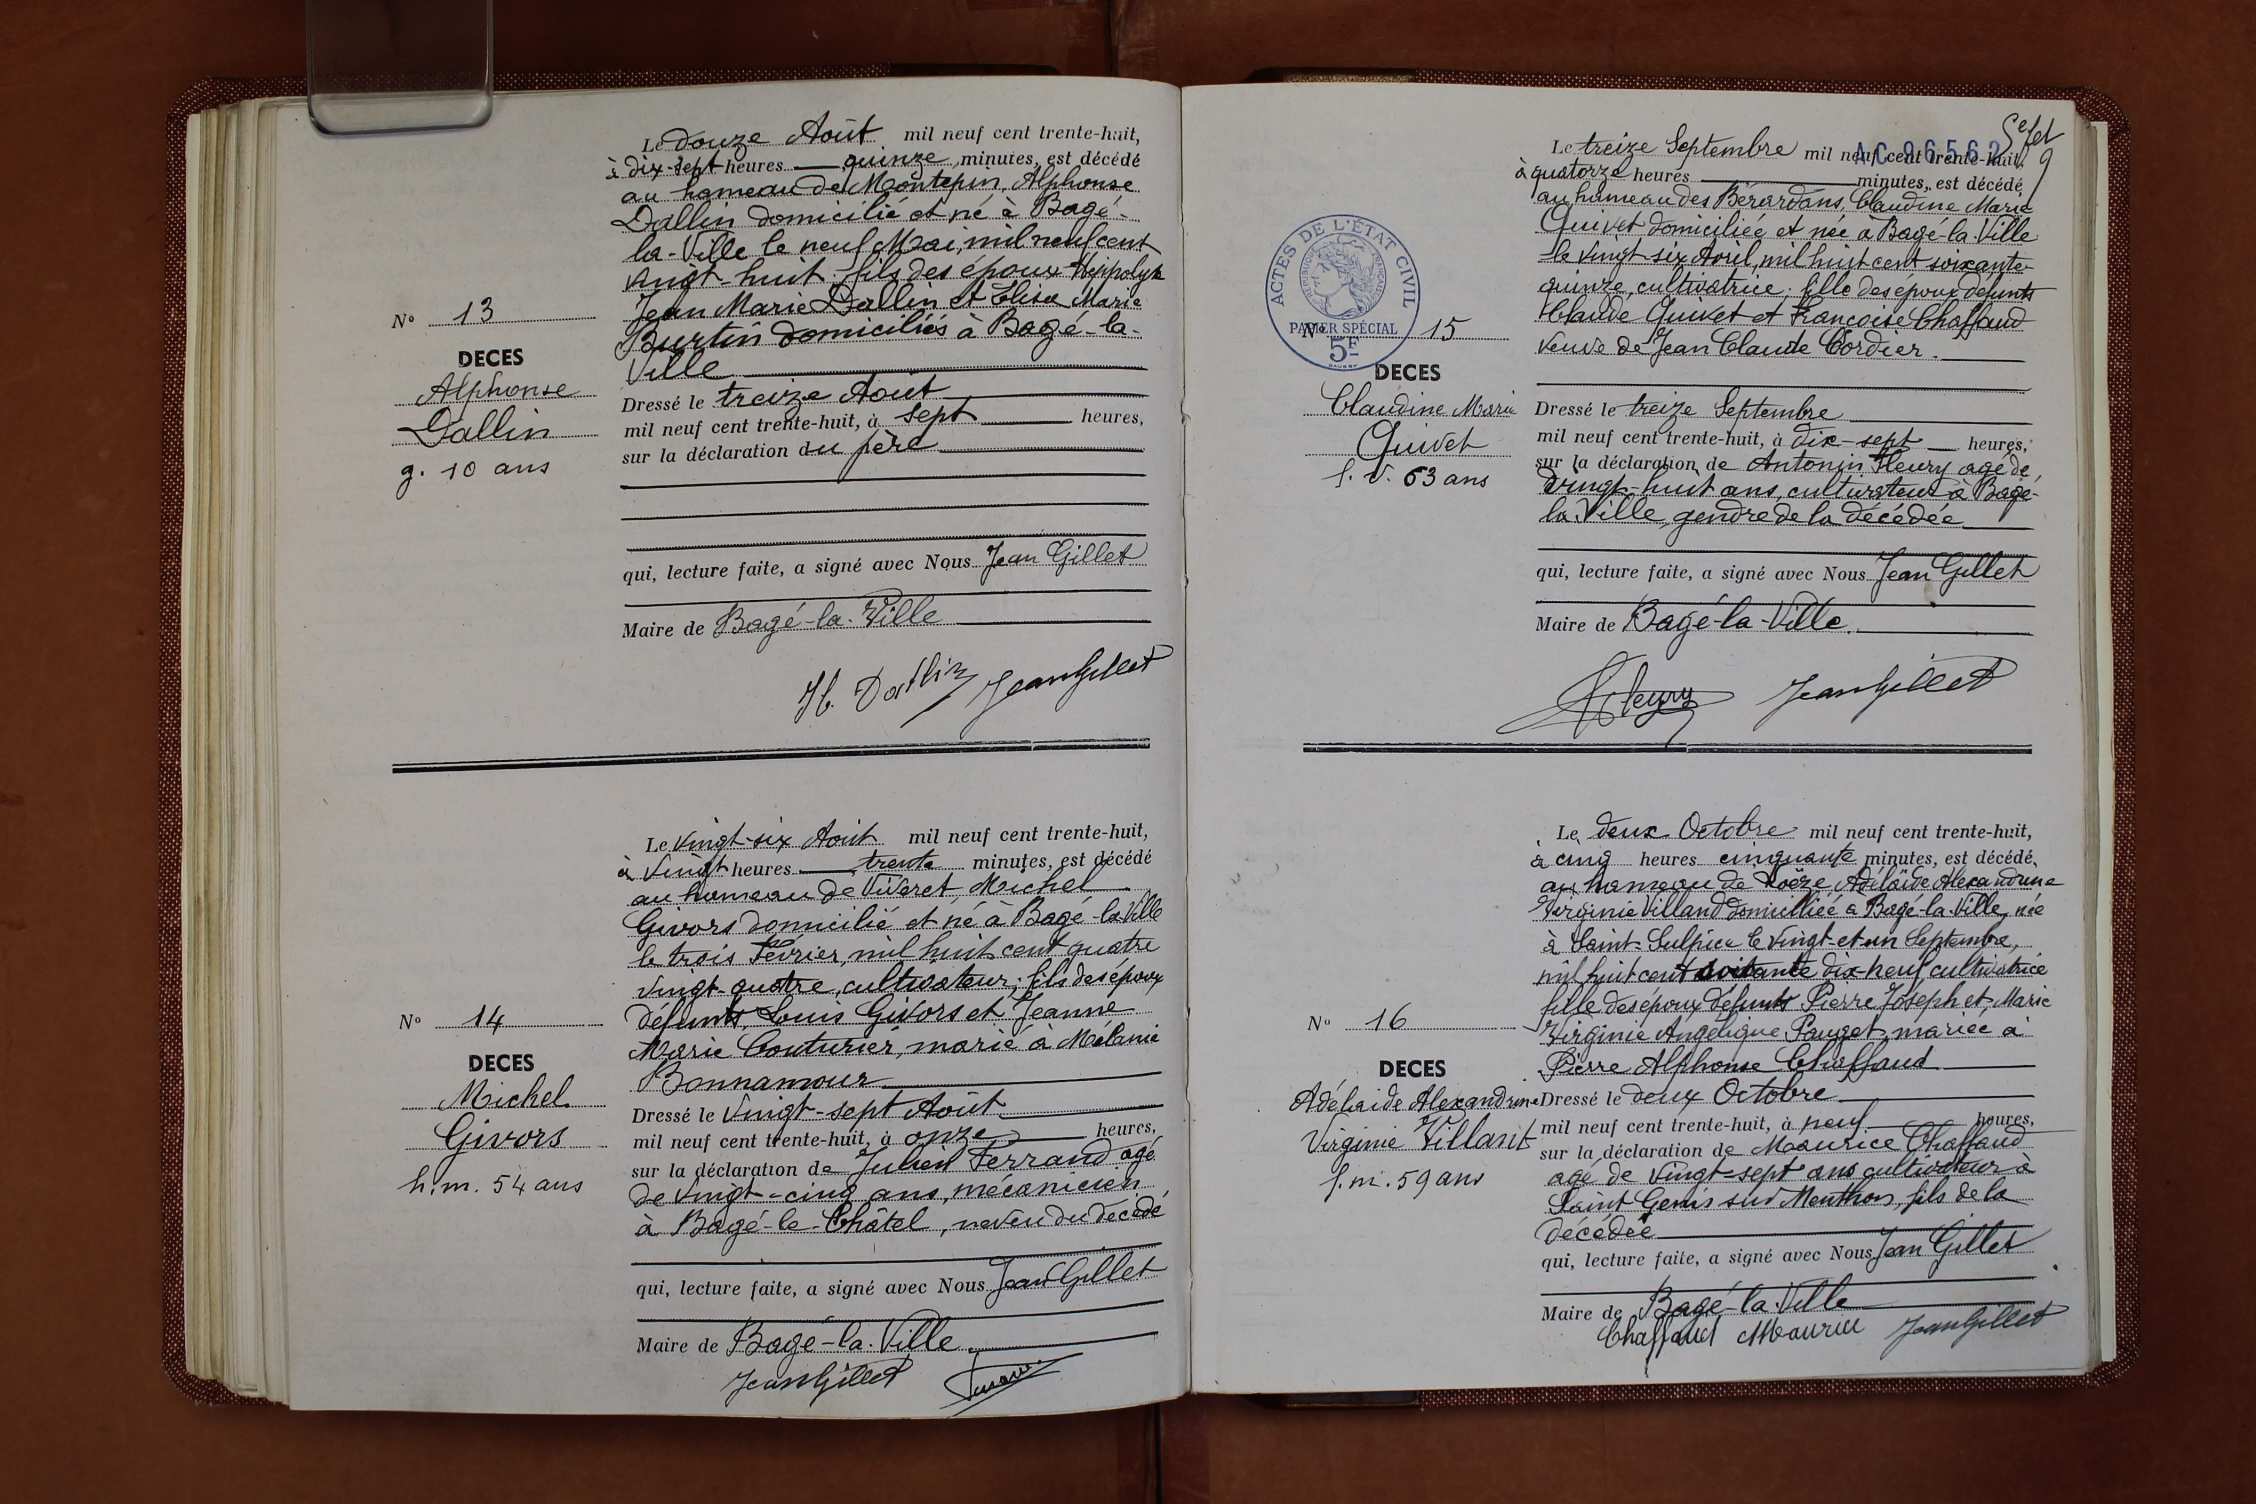 Le douze Août mil neuf cent trente-huit,
à dix-sept heures quinze minutes, est décédé
au hameau de Montepin, Alphonse
Dallin domicilié et né à Bagé-
la-Ville le neuf Mai, mil neuf cent
vingt-huit; fils des époux Hyppolyte
Jean Marie Dallin et Elisa Marie
Burtin domiciliés à Bagé-la-
Ville
N° 13
DECES
Alphonse
Dallin
g. 10 ans
Dressé le treize Août
mil neuf cent trente-huit, à sept heures,
sur la déclaration du père
qui, lecture faite, a signé avec Nous Jean Gillet
Maire de Bagé-la-Ville
H. Dallin Jean Gillet
Le vingt-six Août mil neuf cent trente-huit,
à vingt heures trente minutes, est décédé
au hameau de Viveret, Michel
Givors domicilié et né à Bagé-la-Ville
le trois Février, mil huit cent quatre
vingt-quatre, cultivateur; fils des époux
défunts, Louis Givors et Jeanne
Marie Couturier, marié à Mélanie
Bonnamour
N° 14
DECES
Michel
Givors
h. m. 54 ans
Dressé le vingt-sept Août
mil neuf cent trente-huit, à onze heures,
sur la déclaration de Julien Ferrand agé
de vingt-cinq ans, mécanicien
à Bagé-le-Châtel, neveu du décédé
qui, lecture faite, a signé avec Nous Jean Gillet
Maire de Bagé-la-Ville
Jean Gillet
9
AC 96562
Le treize Septembre mil neuf cent trente-huit,
à quatorze heures minutes, est décédé
au hameau des Bérardans, Claudine Marie
Quivet domiciliée et née à Bagé-la-Ville
le vingt-six Avril, mil huit cent soixante-
quinze, cultivatrice; fille des époux défunts
Claude Quivet et Françoise Chaffaud
veuve de Jean Claude Cordier.
ACTES DE L'ÉTAT CIVIL
RÉPUBLIQUE FRANÇAISE
PAPIER SPÉCIAL
5F
N° 15
DECES
Claudine Marie
Quivet
f. v. 63 ans
Dressé le treize Septembre
mil neuf cent trente-huit, à dix-sept heures,
sur la déclaration de Antonin Fleury agé de
vingt-huit ans, cultivateur à Bagé-
la-Ville, gendre de la décédée
qui, lecture faite, a signé avec Nous Jean Gillet
Maire de Bagé-la-Ville.
Fleury Jean Gillet
Le deux Octobre mil neuf cent trente-huit,
à cinq heures cinquante minutes, est décédé
au hameau de Loëze Adélaïde Alexandrine
Virginie Villand domiciliée à Bagé-la-Ville, née
à Saint-Sulpice le vingt-et-un Septembre,
mil huit cent soixante dix-neuf, cultivatrice
fille des époux défunts Pierre Joseph et Marie
Virginie Angélique Pauget, mariée à
Pierre Alphonse Chaffaud
N° 16
DECES
Adélaïde Alexandrine
Virginie Villand
f. m. 59 ans
Dressé le deux Octobre
mil neuf cent trente-huit, à neuf heures,
sur la déclaration de Maurice Chaffaud
agé de vingt-sept ans cultivateur à
Saint Genis sur Menthon, fils de la
décédée
qui, lecture faite, a signé avec Nous Jean Gillet
Maire de Bagé-la-Ville
Chaffaud Maurice Jean Gillet